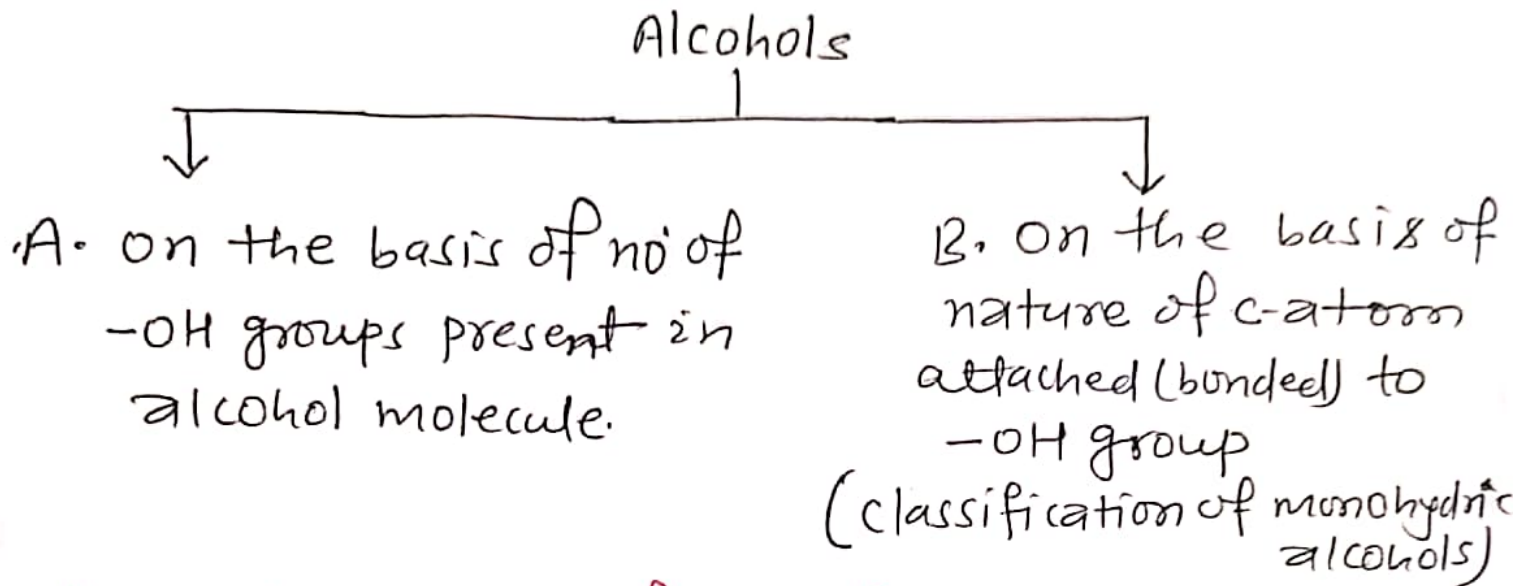 Alcohols
A. on the basis of no of
-OH groups present in
alcohol molecule.
B. On the basis of
nature of c-atom
attached (bonded) to
-OH group
(classification of monohydric
alcohols)